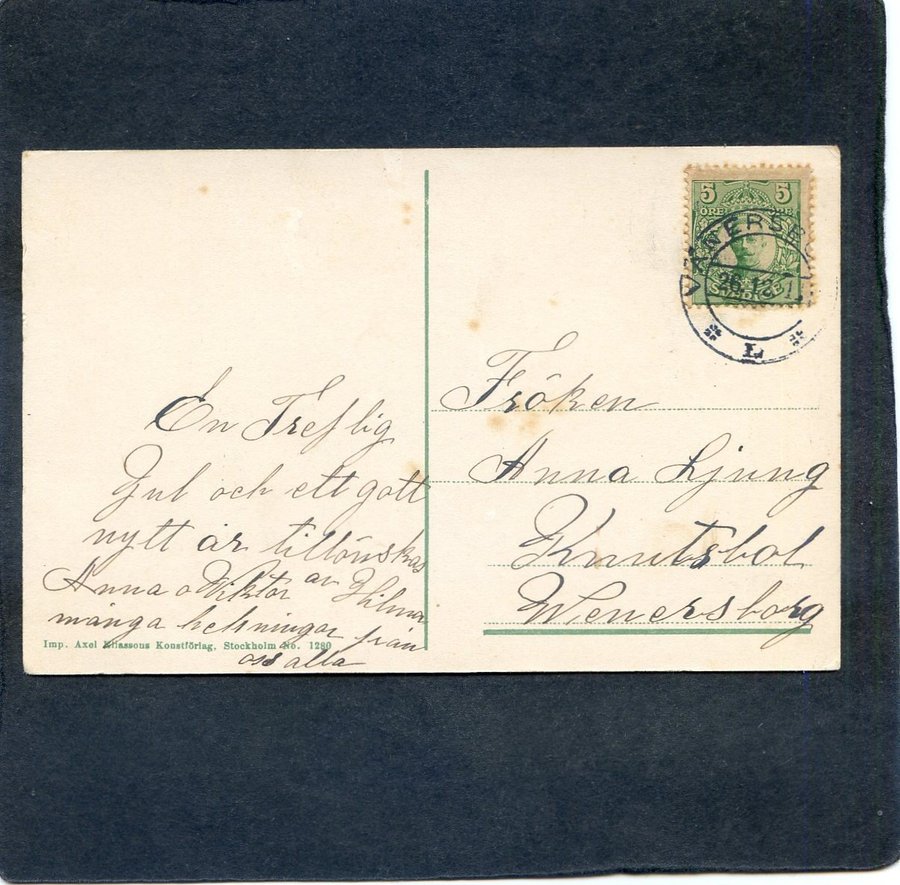 En Treflig
Jul och ett gott
nytt år tillönskas
Anna o Wiktor av Hilma
många helsningar från
oss alla
Imp. Axel Eliassons Konstförlag, Stockholm No. 1280
5 5
ÖRE
SVERIGE
VÄNERSB
26.12.1
L
Fröken
Anna Ljung
Knutsbol
Wenersborg